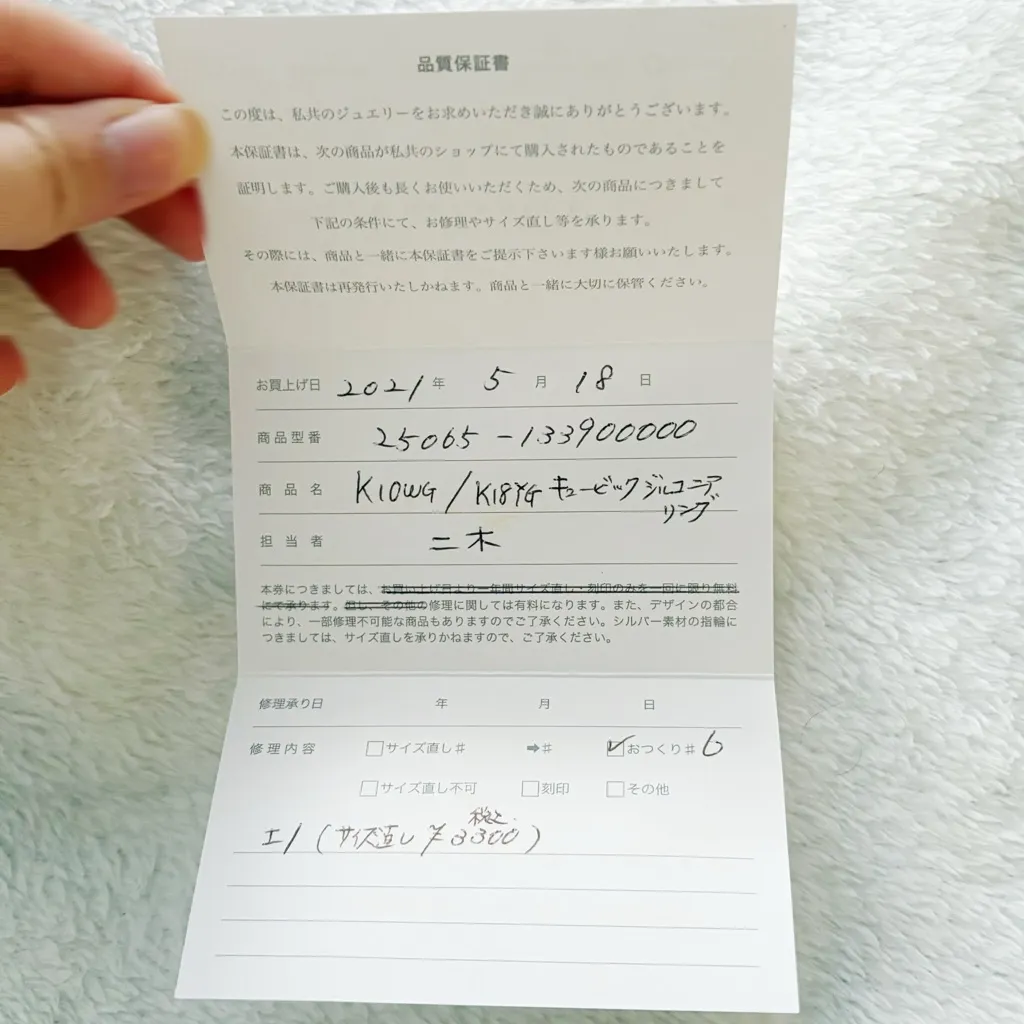 品質保証書
この度は、私共のジュエリーをお求めいただき誠にありがとうございます。
本保証書は、次の商品が私共のショップにて購入されたものであることを
証明します。ご購入後も長くお使いいただくため、次の商品につきまして
下記の条件にて、お修理やサイズ直し等を承ります。
その際には、商品と一緒に本保証書をご提示下さいます様お願いいたします。
本保証書は再発行いたしかねます。商品と一緒に大切に保管ください。
お買上げ日 2021年 5月 18日
商品型番 25065-133900000
商品名 K10WG/K18YG キュービックジルコニア
リング
担当者 二木
本券につきましては、お買い上げ日より一年間サイズ直し・刻印のみを一回に限り無料
にて承ります。但し、その他の修理に関しては有料になります。また、デザインの都合
により、一部修理不可能な商品もありますのでご了承ください。シルバー素材の指輪に
つきましては、サイズ直しを承りかねますので、ご了承ください。
修理承り日 年 月 日
修理内容 □サイズ直し# ➡# ☑おつくり# 6
□サイズ直し不可 □刻印 □その他
税込
(サイズ直し ¥3300)